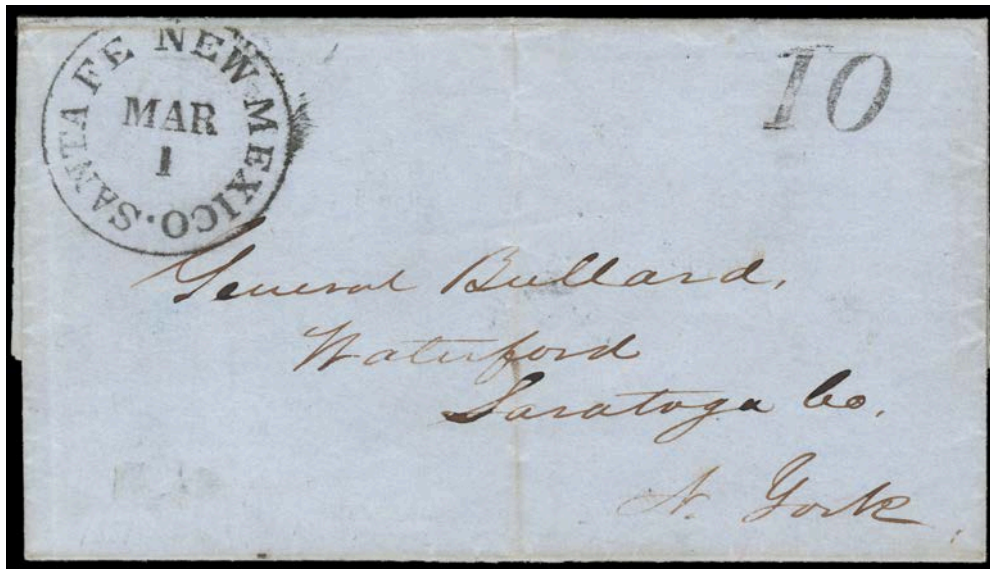 SANTA FE NEW MEXICO.
MAR
1
10
General Bullard,
Waterford
Saratoga Co,
N. York